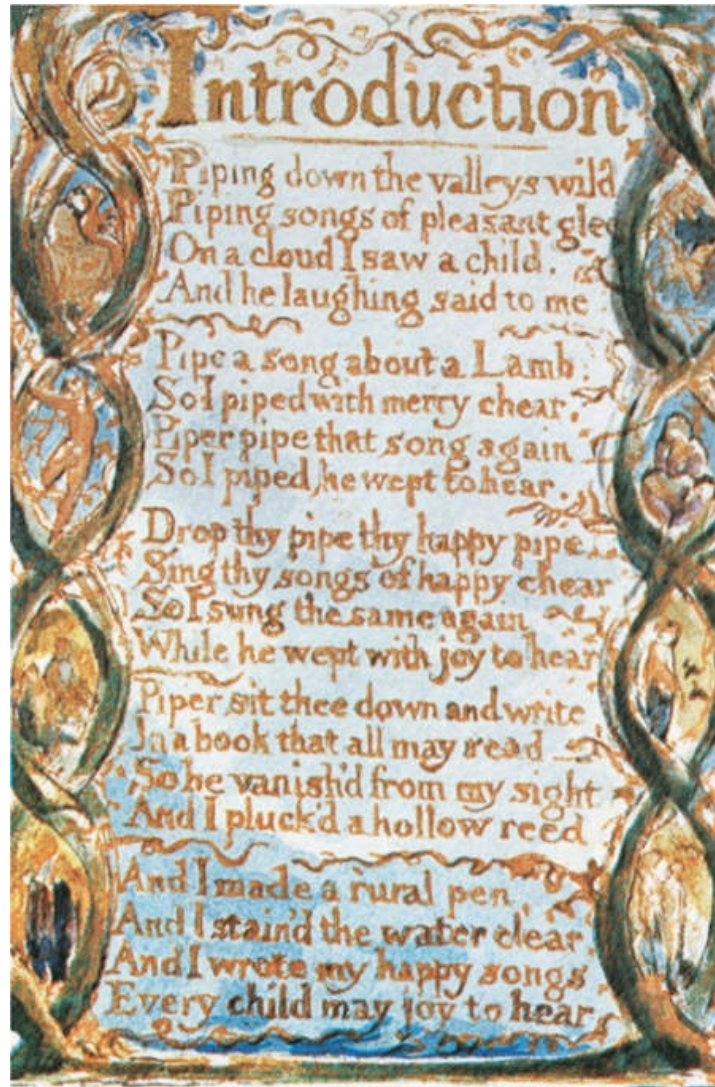 Introduction
Piping down the valleys wild
Piping songs of pleasant glee
On a cloud I saw a child.
And he laughing said to me
Pipe a song about a Lamb:
So I piped with merry chear.
Piper pipe that song again
So I piped, he wept to hear.
Drop thy pipe thy happy pipe
Sing thy songs of happy chear
So I sung the same again
While he wept with joy to hear
Piper sit thee down and write
In a book that all may read
So he vanish'd from my sight
And I pluck'd a hollow reed
And I made a rural pen,
And I stain'd the water clear
And I wrote my happy songs
Every child may joy to hear